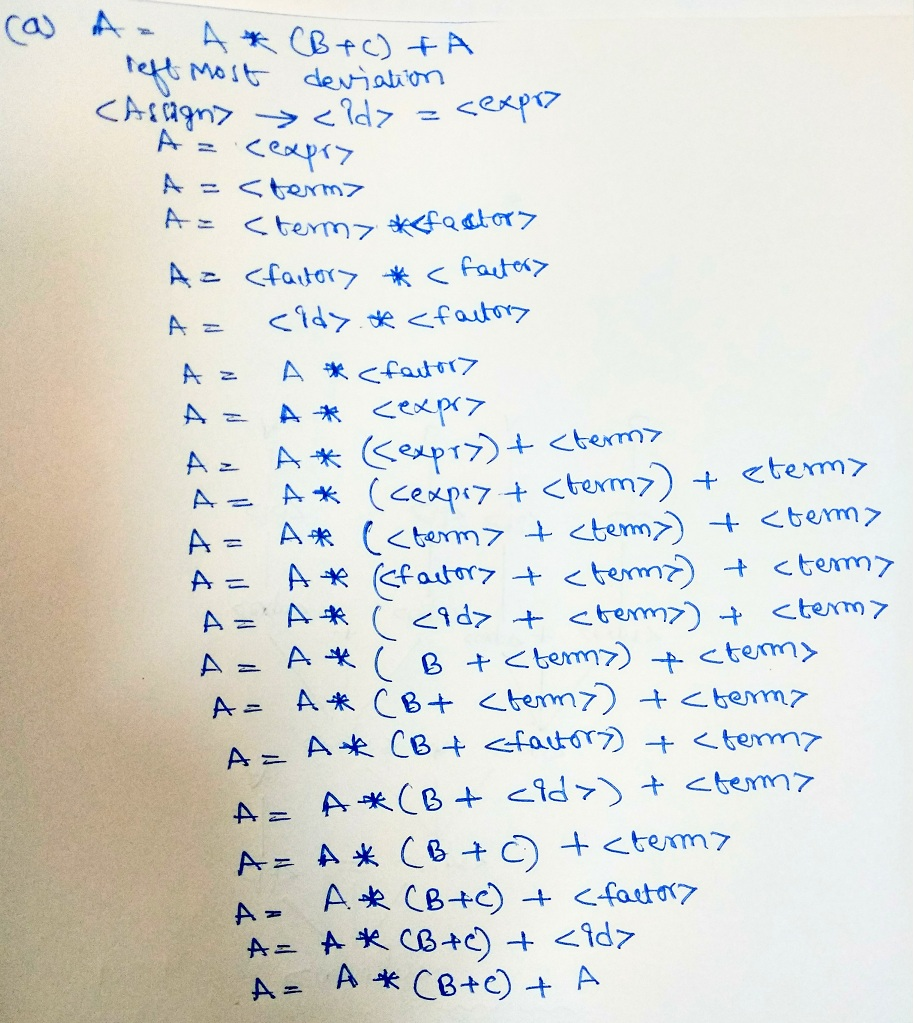 (a) A = A * (B+C) + A
left most deviation
<Assign> → <id> = <expr>
A = <expr>
A = <term>
A = <term> *<factor>
A = <factor> * < factor>
A = <id> * <factor>
A = A * <factor>
A = A * <expr>
A = A * (<expr>) + <term>
A = A * (<expr> + <term>) + <term>
A = A * (<term> + <term>) + <term>
A = A * (<factor> + <term>) + <term>
A = A * ( <id> + <term>) + <term>
A = A * ( B + <term>) + <term>
A = A * (B+ <term>) + <term>
A = A * (B + <factor>) + <term>
A = A * (B + <id>) + <term>
A = A * (B + C) + <term>
A = A * (B+C) + <factor>
A = A * (B+C) + <id>
A = A * (B+C) + A